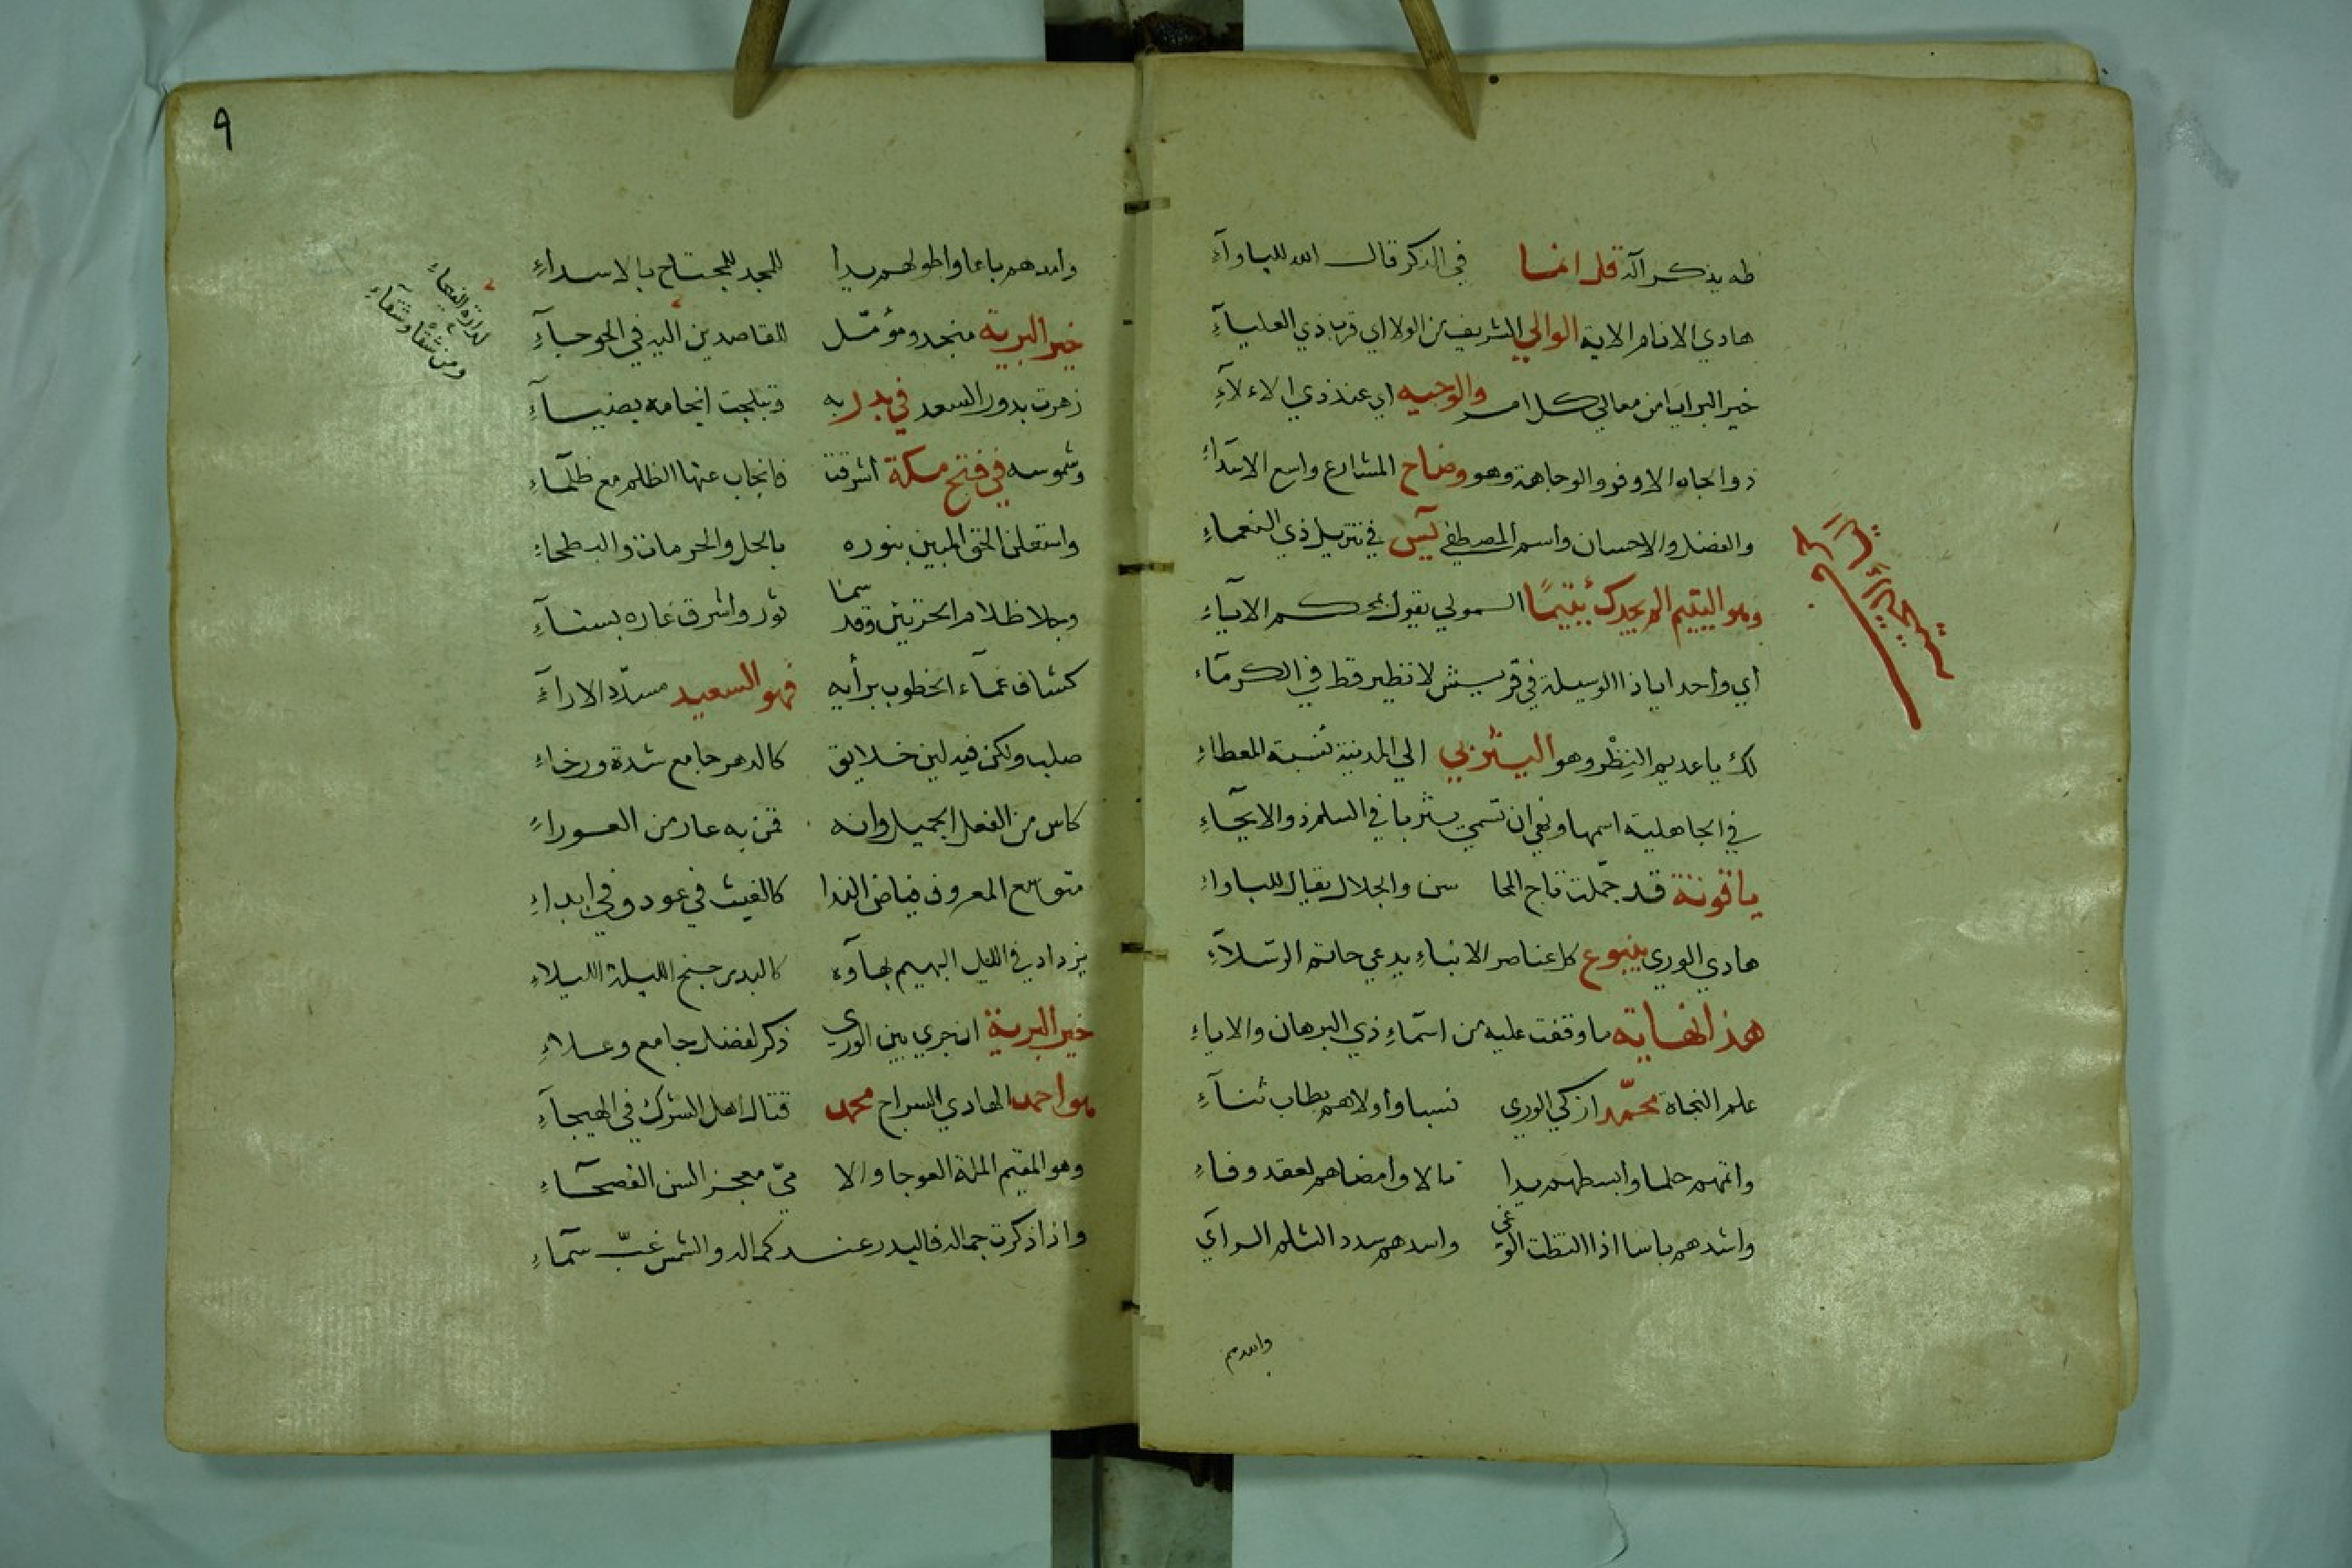 طه يذكر آله قل انما في الذكر قال الله للباوآءِ
هادي الانام الاية الوالي الشريف من الولا اي قرب ذي العليآءِ
خير البرايا من معالي كل امر والوجيه اي عند ذي الاء لآءِ
ذو الجاه الاوفر والوجاهة وهو وضاح المشارع واسع الاسداءِ
والفضل والاحسان واسم المصطفي يٓس في تنزيل ذي النعماءِ
وهو اليتيم الم يجدك يتيمًا المولي يقول بمحكم الاياءِ
أي وأحدا ياذا الوسيلة في قريش لا نظير قط في الكرمآء
لك يا عديم النِظْر وهو اليثربي الي المدينة نسبة المعطاءِ
في الجاهلية اسمها ونهي ان تسمي يثربا في السلم ذو الايحآءِ
ياقوتة قد جمّلت تاج المحا سن والجلال يقال للباواءِ
هادي الوري ينبوع كل عناصر الانباءِ يدعي خاتم الرسلآءِ
هذا نهاية ما وقفت عليه من اسمآءِ ذي البرهان والاياءِ
علم النجاة محمّد ازكي الوري نسبا وأولاهم بطاب ثنآءِ
واتمهم حلما وابسطهم يدا مالا وامضاهم لعقد وفاءِ
واشدهم باسا اذا التظت الوغي واسدهم سدد الثلم الرآي
وامدهم
٩
وامدهم باعا واطولهم يدا للمجد للمجتاح بالاسداءِ
خير البرية منجد ومؤمّل للقاصدين اليه في الحوجآءِ
زهرت بدور السعد في بدر به وتبلجت انجامه بضيآءِ
وشموسه في فتح مكة اشرقت فانجاب عنها الظلم مع ظلمآءِ
واستعلن الحق المبين بنوره بالحل والحرمات والبطحاءِ
وجلا ظلام الخزيتين وقد سما ثور واشرق غاره بسنآءِ
كشاف غمآء الخطوب برأيه فهو السعيد مسدّد الارآءِ
صلب ولكن فيه لين خلايق كالدهر جامع شدة ورخاءِ
كاس من الفعل الجميل وانه قمن به عار من العوراءِ
متوسع المعروف فياض الندا كالغيث في عود وفي ابداءِ
يزداد في الليل البهيم بهآوه كالبدر جنح الليلة الليلاءِ
خير البرية ان جري بين الوري ذكر لفضل جامع وعلاءِ
هو احمد الهادي السراج محمد قتال اهل الشرك في الهيجآءِ
وهو المقيم الملة العوجا والا ميّ معجز السن الفصحآءِ
واذا ذكرت جماله فالبدر عند كماله والشمس غبّ سمآءِ